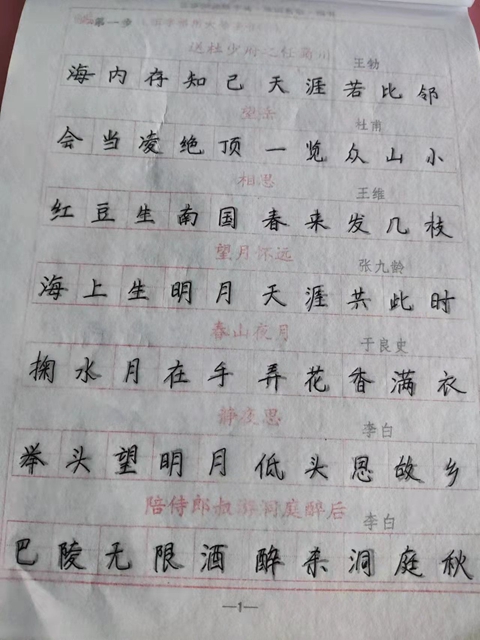 第一步
送杜少府之杜蜀川 王勃
海内存知己天涯若比邻
望岳 杜甫
会当凌绝顶一览众山小
相思 王维
红豆生南国春来发几枝
望月怀远 张九龄
海上生明月天涯共此时
春山夜月 于良史
掬水月在手弄花香满衣
静夜思 李白
举头望明月低头思故乡
陪侍郎叔游洞庭醉后 李白
巴陵无限酒醉杀洞庭秋
—1—